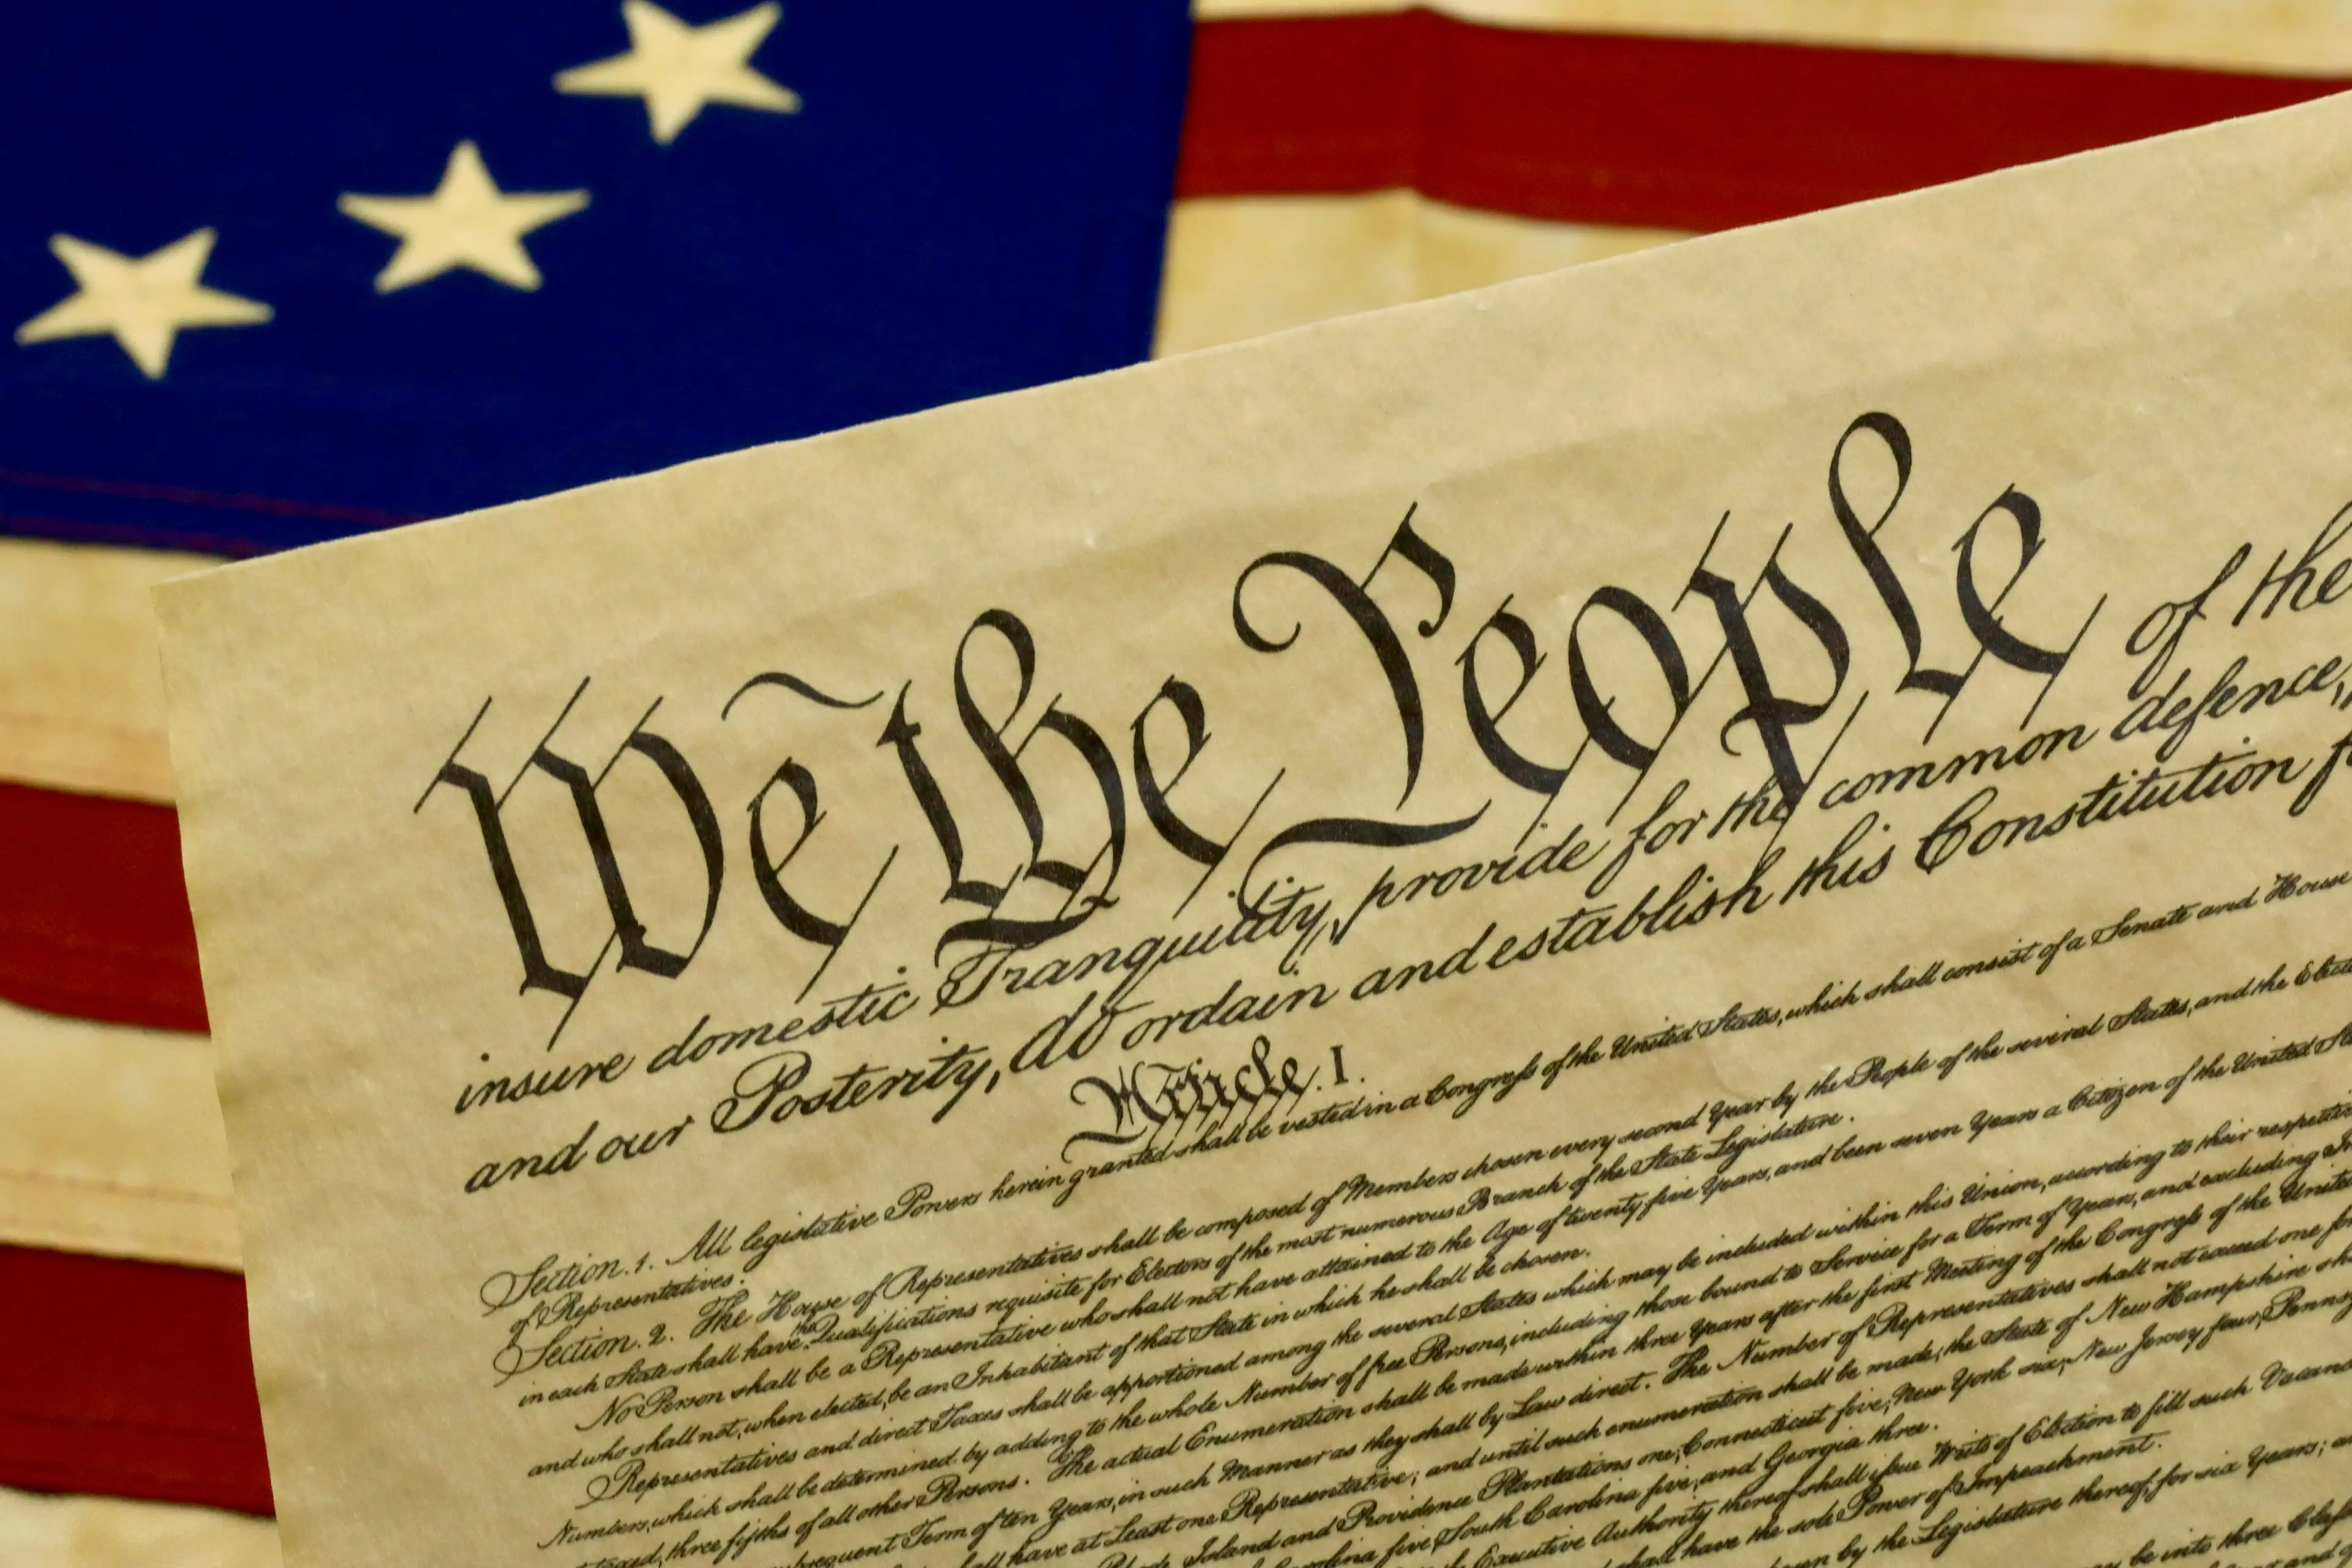 We the People of the
insure domestic Tranquility, provide for the common defence,
and our Posterity, do ordain and establish this Constitution
Article. I.
Section. 1. All legislative Powers herein granted shall be vested in a Congress of the United States, which shall consist of a Senate and House
of Representatives.
Section. 2. The House of Representatives shall be composed of Members chosen every second Year by the People of the several States, and the
in each State shall have the Qualifications requisite for Electors of the most numerous Branch of the State Legislature.
No Person shall be a Representative who shall not have attained to the Age of twenty five Years, and been seven Years a Citizen of the United
and who shall not, when elected, be an Inhabitant of that State in which he shall be chosen.
Representatives and direct Taxes shall be apportioned among the several States which may be included within this Union, according to their
Numbers, which shall be determined by adding to the whole Number of free Persons, including those bound to Service for a Term of Years, and excluding
three fifths of all other Persons. The actual Enumeration shall be made within three Years after the first Meeting of the Congress of the United
Term of ten Years, in such Manner as they shall by Law direct. The Number of Representatives shall not exceed one for
have at Least one Representative; and until such enumeration shall be made, the State of New Hampshire
Island and Providence Plantations one, Connecticut five, New York six, New Jersey four,
five, South Carolina five, and Georgia three.
Executive Authority thereof shall issue Writs of Election to fill such
shall have the sole Power of Impeachment.
by the Legislature thereof, for six Years;
be into three